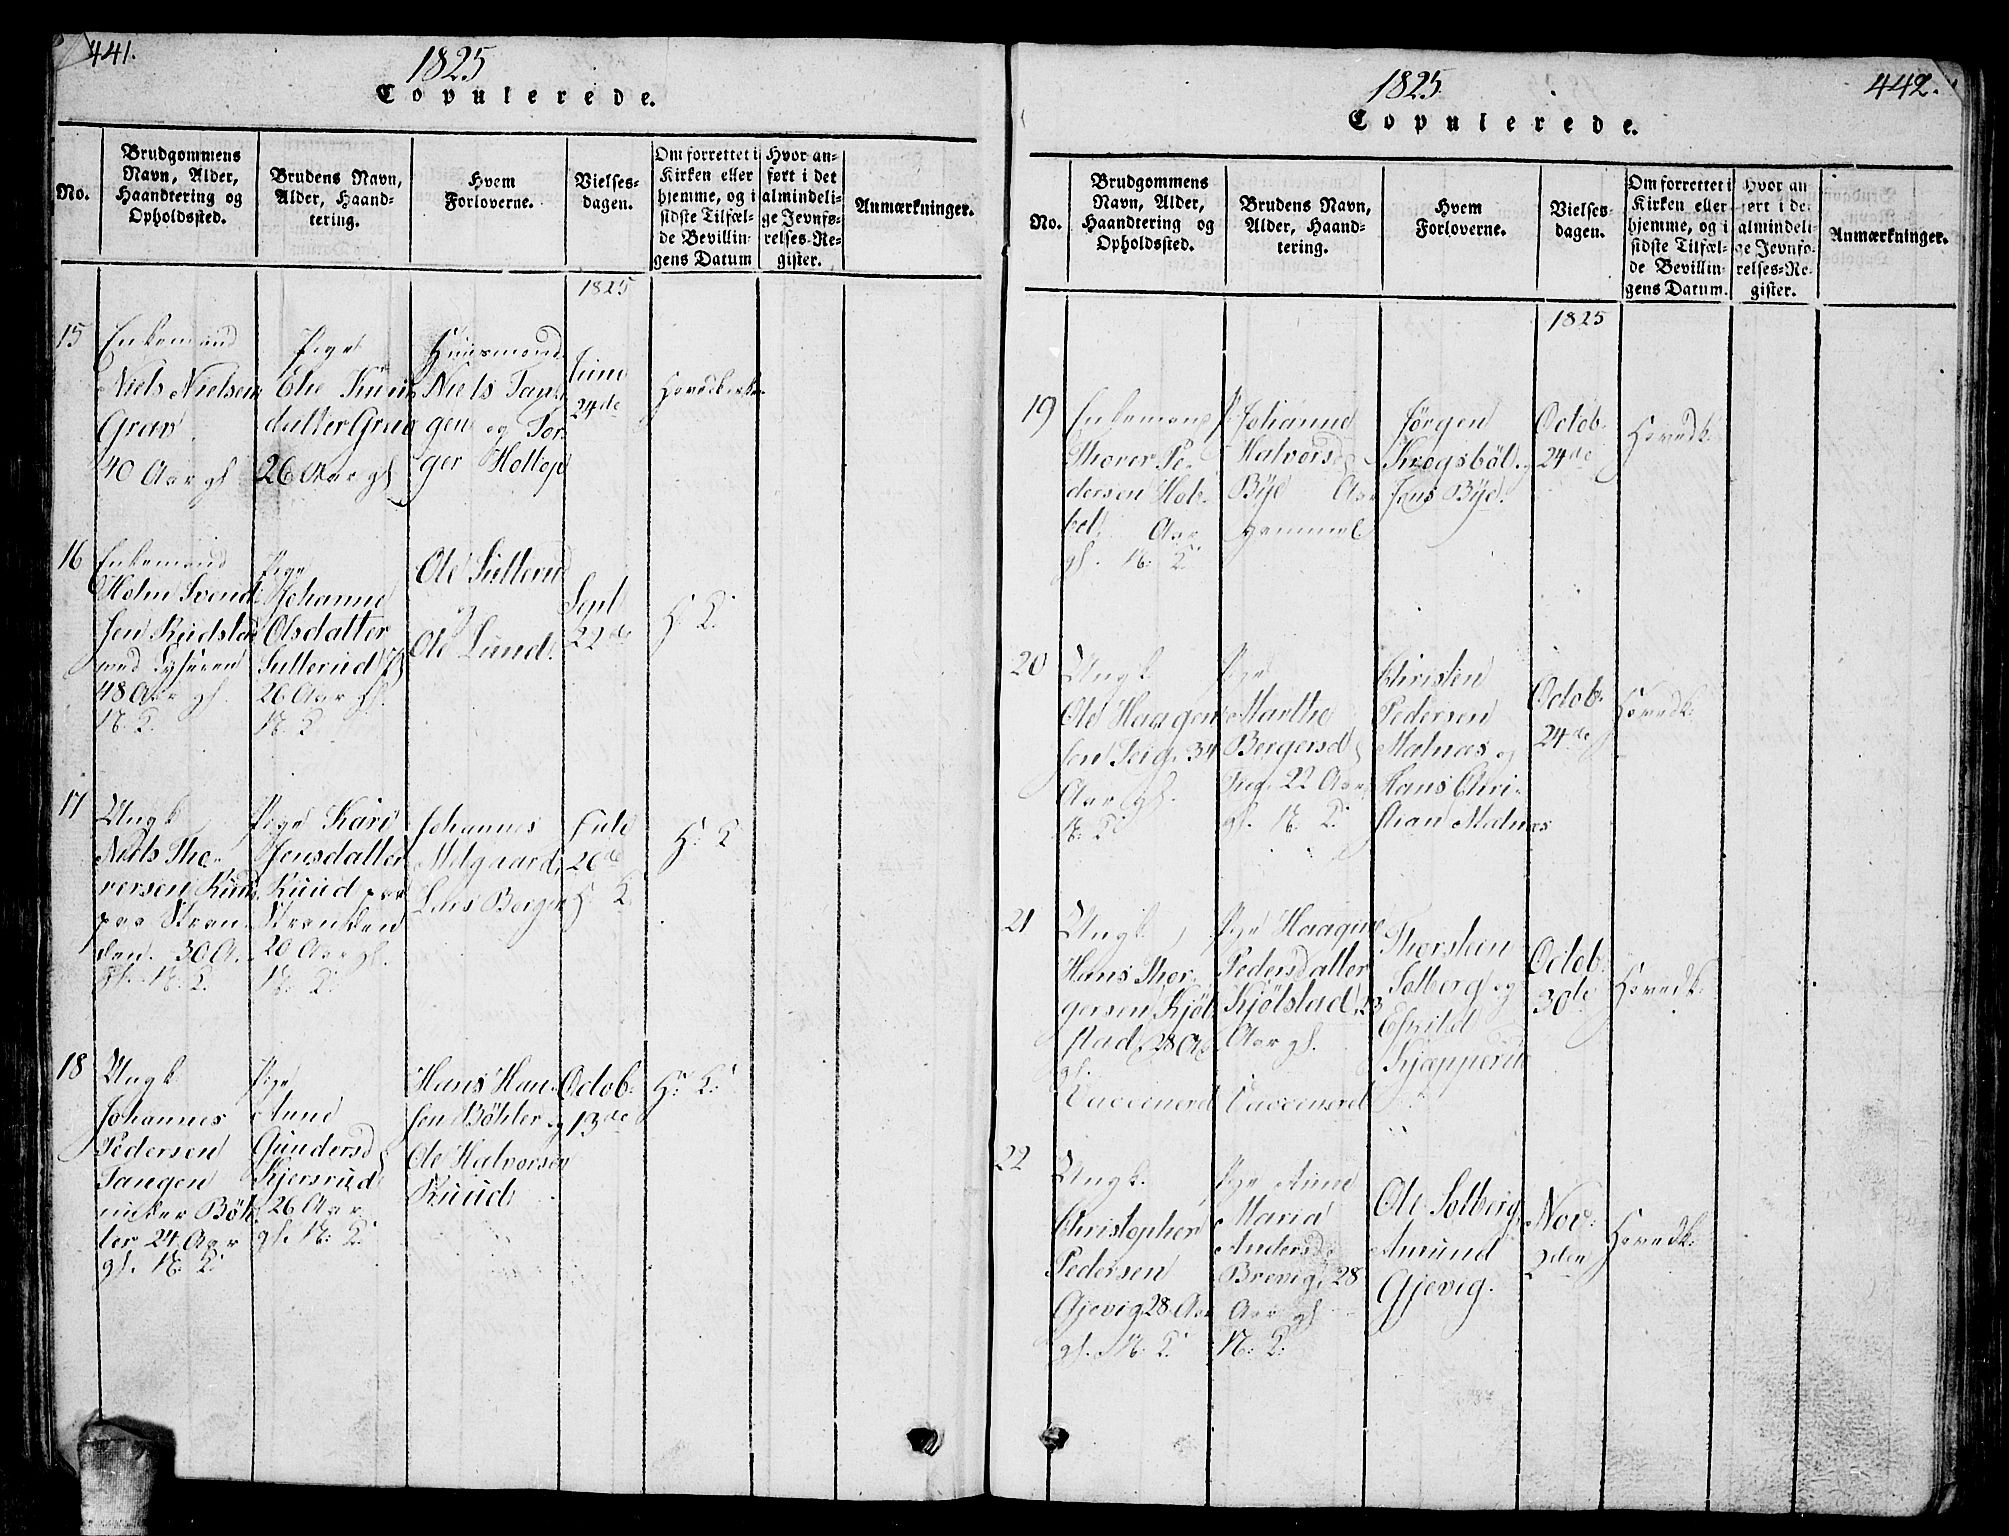 441.
1825
Copulerede.
No.
Brudgommens
Navn, Alder,
Haandtering og
Opholdssted.
Brudens Navn,
Alder, Haand-
tering.
Hvem
Forloverne.
Vielses-
dagen.
Om forrettet i
Kirken eller
hjemme, og i
sidste Tilfæl-
de Bevillin-
gens Datum
Hvor an-
ført i det
almindeli-
ge Jevnfø-
relses-Re-
gister.
Anmærkninger.
1825
15
Enkemand
Niels Nielsen
Grav
40 Aar gl
Pige
Else
datter Grav
26 Aar gl
Huusmand
Niels Tan-
gen og Tor-
ger Holtop
Juni
24de
Hovedkirke
16
Enkemand
Holm Svend-
sen Rudstad
48 Aar gl.
N. C.
Pige
Johanne
Olsdatter
Sutterud
26 Aar gl.
N. C
Ole Sutterud
og
Ole Lund.
Sept
22de
H. K.
17
Ungk
Niels Tho-
versen Ruud
paa Stran-
den. 30 A.
gl. N. C.
Pige Kari
Jensdatter
Ruud paa
Stranden
20 Aar gl.
N. C.
Johannes
Melgaard,
Lars Bergen
Juli
20de
H. K.
H. K
18
Ungk
Johannes
Pedersen
Tangen
under Böh-
ler 24 Aar
gl. N. C.
Pige
Anne
Gundersd
Kjersrud
26 Aar
gl. N. C.
Hans Han-
sen Böhler og
Ole Halvorsen
Ruud
Octob.
13de
H. K.
442.
1825
Copulerede.
No.
Brudgommens
Navn, Alder,
Haandtering og
Opholdssted.
Brudens Navn,
Alder, Haand-
tering.
Hvem
Forloverne.
Vielses-
dagen.
Om forrettet i
Kirken eller
hjemme, og i
sidste Tilfæl-
de Bevillin-
gens Datum.
Hvor an
ført i de
almindeli
ge Jevnfø-
relses-Re-
gister.
Anmærkninger.
1825
19
Enkemand
Thorer Pe-
dersen Hob-
bel, Aar
gl. N. C
P. Johanne
Halvorsd
Bÿe Aar
gammel
Jørgen
Krogsböl og
Jens Bÿe.
Octob.
24de
Hovedk.
20
Ungk
Ole Haagen-
sen Teig. 34
Aar gl.
N. C
Pige
Marthe
Bergersd
Teig. 22 Aar
gl. N. C.
Christen
Pedersen
Malnæs og
Hans Chri-
stian Malnæs
Octob.
24de
Hovedk.
21
Ungk
Hans Thor-
gersen Kjöl-
stad, 28 A.
gl.
Vaccinered
Pige Haagine
Pedersdatter
Kjölstad, 23
Aar gl.
Vaccinered
Thorstein
Solberg og
Eskild
Kjepperud
Octob.
30te
Hovedk.
22
Ungk.
Christopher
Pedersen
Gjevig 28 Aar
gl. N. C.
Pige Anne
Maria
Andersd.
Brevig, 28
Aar gl.
N. C.
Ole Solberg,
Amund
Gjevig.
Nov.
2den
Hovedk.